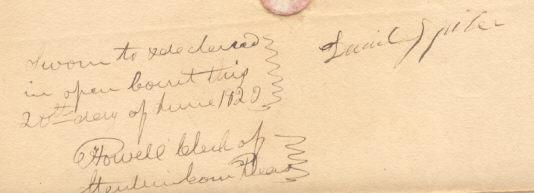 Sworn to & declared
in open Court this
20th day of June 1820
Howell Clerk of
Common Pleas
David Spiker